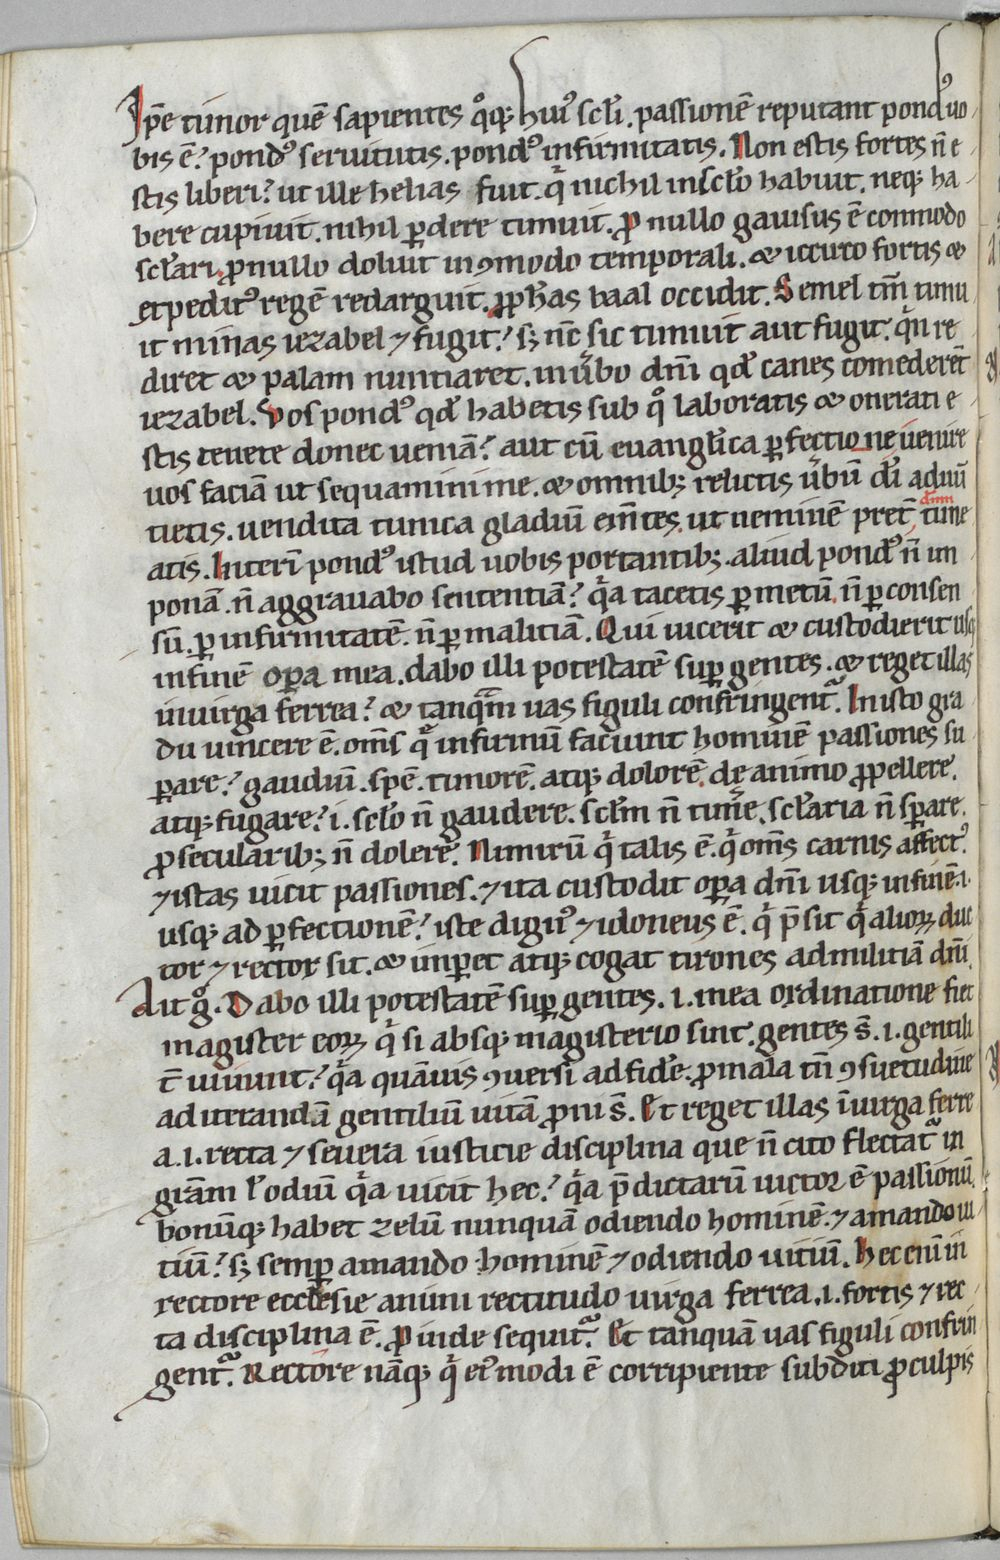 Ip̄e timor quē sapientes q̊q; huiꝰ scl̄i. passionē reputant pondꝰ uo-
bis ē? pondꝰ seruitutis. pondꝰ infirmitatis. Non estis fortes n̄ e-
stis liberi? ut ille helias fuit. qͥ nichil in scl̄o habuit. neq; ha-
bere cupiuit. nihil ꝑdere timuit. ꝓ nullo gauisus ē commodo
scl̄ari. ꝓ nullo doluit inꝯmodo temporali. & iccirco fortis &
expeditꝰ regē redarguit. ꝓph̄as baal occidit. Semel tm̄ timu
it minas iezabel ⁊ fugit? sꝫ nc̄ sic timuit aut fugit. qͥn re
diret & palam nuntiaret. in ūbo dn̄i qd̄ canes comederēt
iezabel. Vos pondꝰ qd̄ habetis sub q̊ laboratis & onerati e-
stis tenete donec ueniā? aut cū euanglica ꝑfectione uenire
uos faciā ut sequamini me. & omnibꝫ relictis ūbū dī adnū
tietis. uendita tunica gladiū em̄tes. ut neminē pret̄ dnm time
atis. Interī pondꝰ istud uobis portantibꝫ. aliud pondꝰ n̄ im
ponā. n̄ aggrauabo sententiā? qͣa tacetis ꝑ metū. n̄ ꝑ consen
sū. ꝑ infirmitatē. n̄ ꝑ malitiā. Qui uicerit & custodierit usq;
in finē oꝑa mea. dabo illi potestatē suꝑ gentes. & reget illas
in uirga ferrea? & tanqͣm uas figuli confringentᷣ. In isto gra
du uincere ē. om̄s qͥ infirmū faciunt hominē passiones su
ꝑare? gaudiū. spē. timorē. atq; dolorē. de animo ꝓpellere.
atq; fugare? .i. scl̄o n̄ gaudere. scl̄m n̄ timere. scl̄aria n̄ sꝑare.
ꝓ secularibꝫ n̄ dolere. Nimirū qͥ talis ē. qͥ om̄s carnis affectꝰ
⁊ istas uicit passiones. ⁊ ita custodit oꝑa dn̄i usq; in finē .i.
usq; ad ꝑfectionē? iste dignꝰ ⁊ idoneus ē. qͥ p̄sit qͥ alioꝝ duc
tor ⁊ rector sit. & imꝑet atq; cogat tirones ad militiā dn̄i.
Ait g̊. Dabo illi potestatē suꝑ gentes. .i. mea ordinatione fiet
magister eoꝝ qͥ si absq; magisterio sint. gentes s̄. .i. gentili
t̄ uiuunt? qͣa quāuis ꝯuersi ad fidē. ꝓ mala tn̄ ꝯsuetudine
ad iterandā gentiliū uitā ꝓni s̄. Et reget illas ī uirga ferre
a. .i. recta ⁊ seuera iusticie disciplina que n̄ cito flectatᷣ in
grām ł odiū qͣa uicit hec? qͣa p̄dictarū uictor ē passionū.
bonūq; habet zelū nunquā odiendo hominē. ⁊ amando ui-
tiū? sꝫ semꝑ amando hominē ⁊ odiendo uitiū. Hec enī in
rectore ecclesie animi rectitudo uirga ferrea. .i. fortis ⁊ rec
ta disciplina ē. ꝓinde sequitᷣ. Et tanquā uas figuli confrin
gentᷣ. Rectore nāq; qͥ eiꝰmodi ē corripiente subditi ꝓ culpis